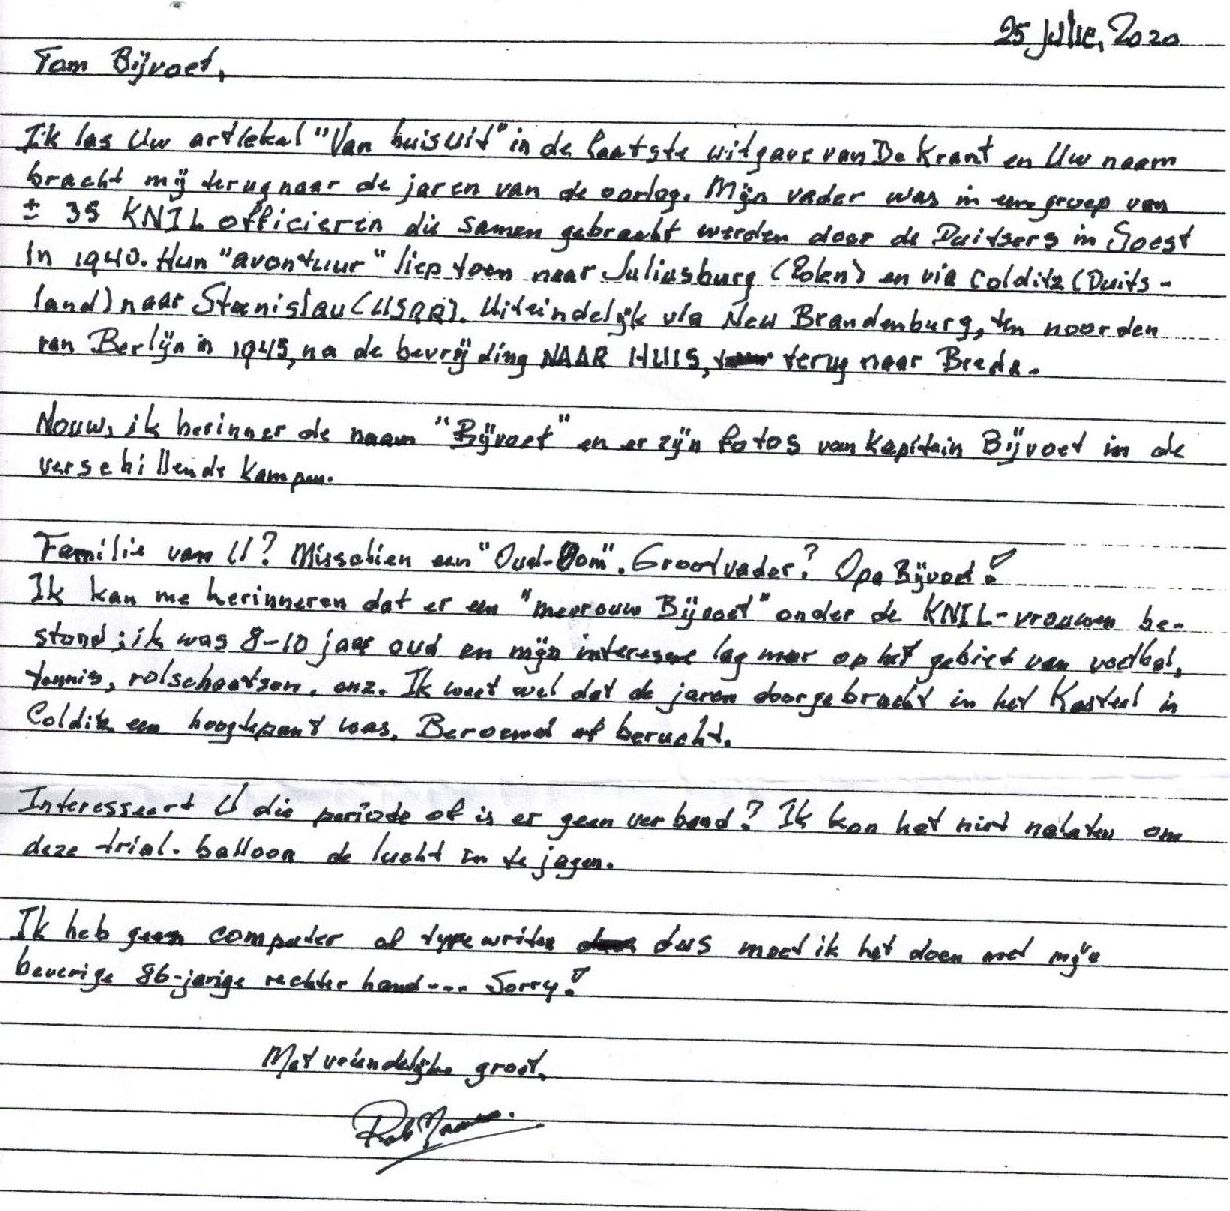 25 Julie, 2020
Tom Bijvoet,
Ik las Uw artiekal "Van huis uit" in de laatste uitgave van De Krant en Uw naam
bracht mij terug naar de jaren van de oorlog. Mijn vader was in een groep van
± 35 KNIL officieren die samen gebracht werden door de Duitsers in Soest
in 1940. Hun "avontuur" liep toen naar Juliusburg (Polen) en via Colditz (Duits-
land) naar Stanislau (USSR). Uiteindelijk via New Brandenburg, ten noorden
van Berlijn in 1945, na de bevrijding NAAR HUIS, terug naar Breda.
Nouw, ik herinner de naam "Bijvoet" en er zijn fotos van Kapitein Bijvoet in de
verschillende kampen.
Familie van U? Misschien een "Oud-Oom". Grootvader? Opa Bijvoet!
Ik kan me herinneren dat er een "mevrouw Bijvoet" onder de KNIL-vrouwen be-
stond; ik was 8-10 jaar oud en mijn interesse lag meer op het gebied van voetbal,
tennis, rolschaatsen, enz. Ik weet wel dat de jaren doorgebracht in het Kasteel in
Colditz een hoogtepunt was. Beroemd of berucht.
Interesseert U die periode of is er geen verband? Ik kon het niet nalaten om
deze trial-balloon de lucht in te jagen.
Ik heb geen computer of typewriter dus moet ik het doen met mijn
beverige 86-jarige rechter hand --- Sorry!
Met vriendelijke groet,
Rob